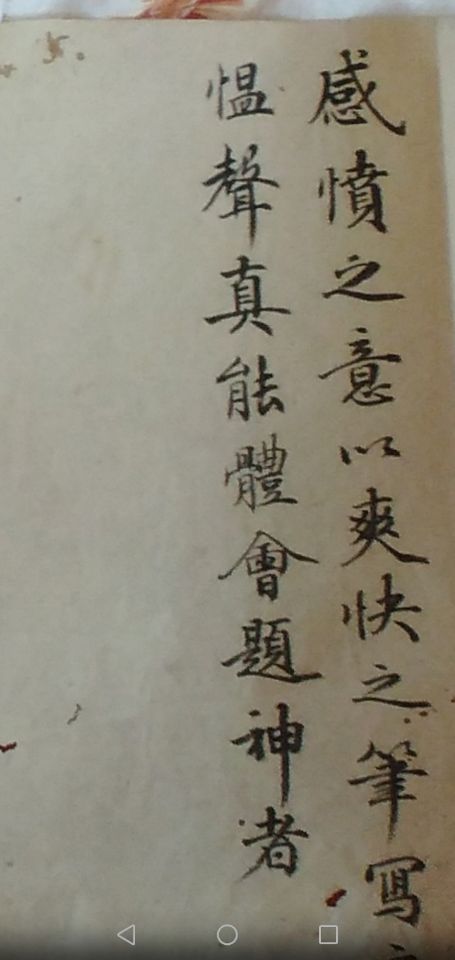 感憤之意以爽快之筆寫之
愠聲真能體會題神者